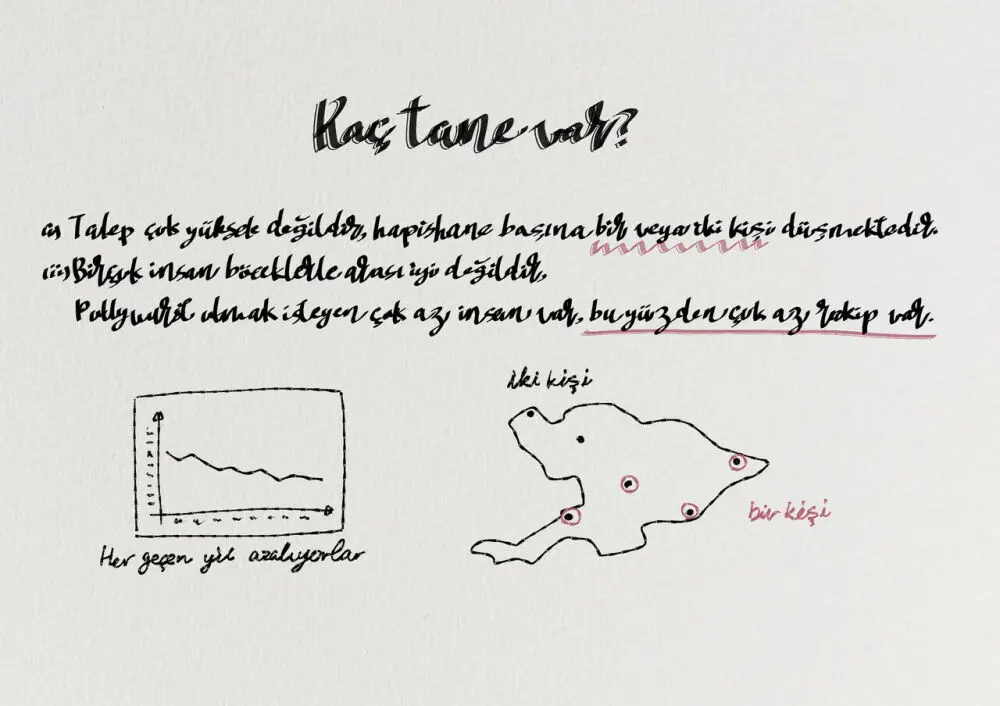 Kaç tane var?
i) Talep çok yüksek değildir, hapishane başına bir veya iki kişi düşmektedir.
ii) Birçok insan böceklerle arası iyi değildir,
Pollywurst olmak isteyen çok az insan var, bu yüzden çok az rakip var.
iki kişi
bir kişi
Her geçen yıl azalıyorlar